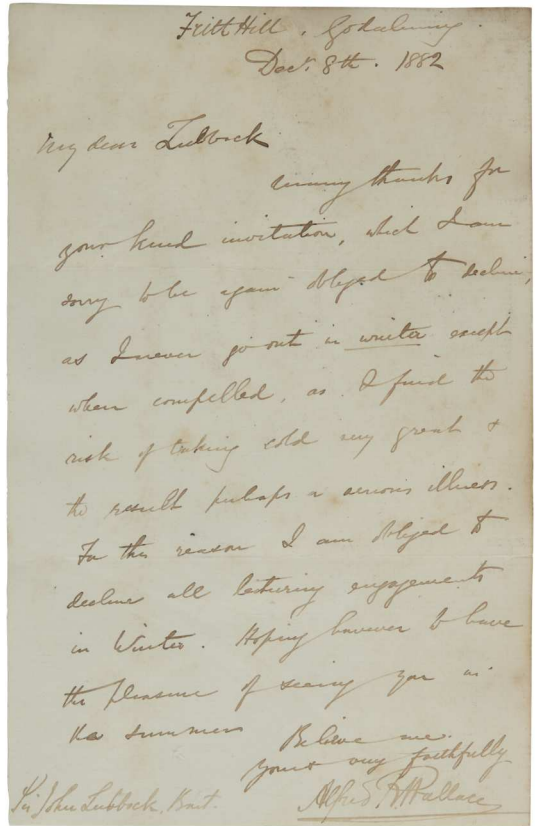 Frith Hill, Godalming.
Decr. 8th. 1882
My dear Lubbock
Many thanks for
your kind invitation, which I am
sorry to be again obliged to decline,
as I never go out in winter except
when compelled, as I find the
risk of taking cold very great &
the result perhaps a serious illness.
For this reason I am obliged to
decline all lecturing engagements
in Winter. Hoping however to have
the pleasure of seeing you in
the summer
Believe me
Yours very faithfully
Alfred R Wallace
Sir John Lubbock, Bart.